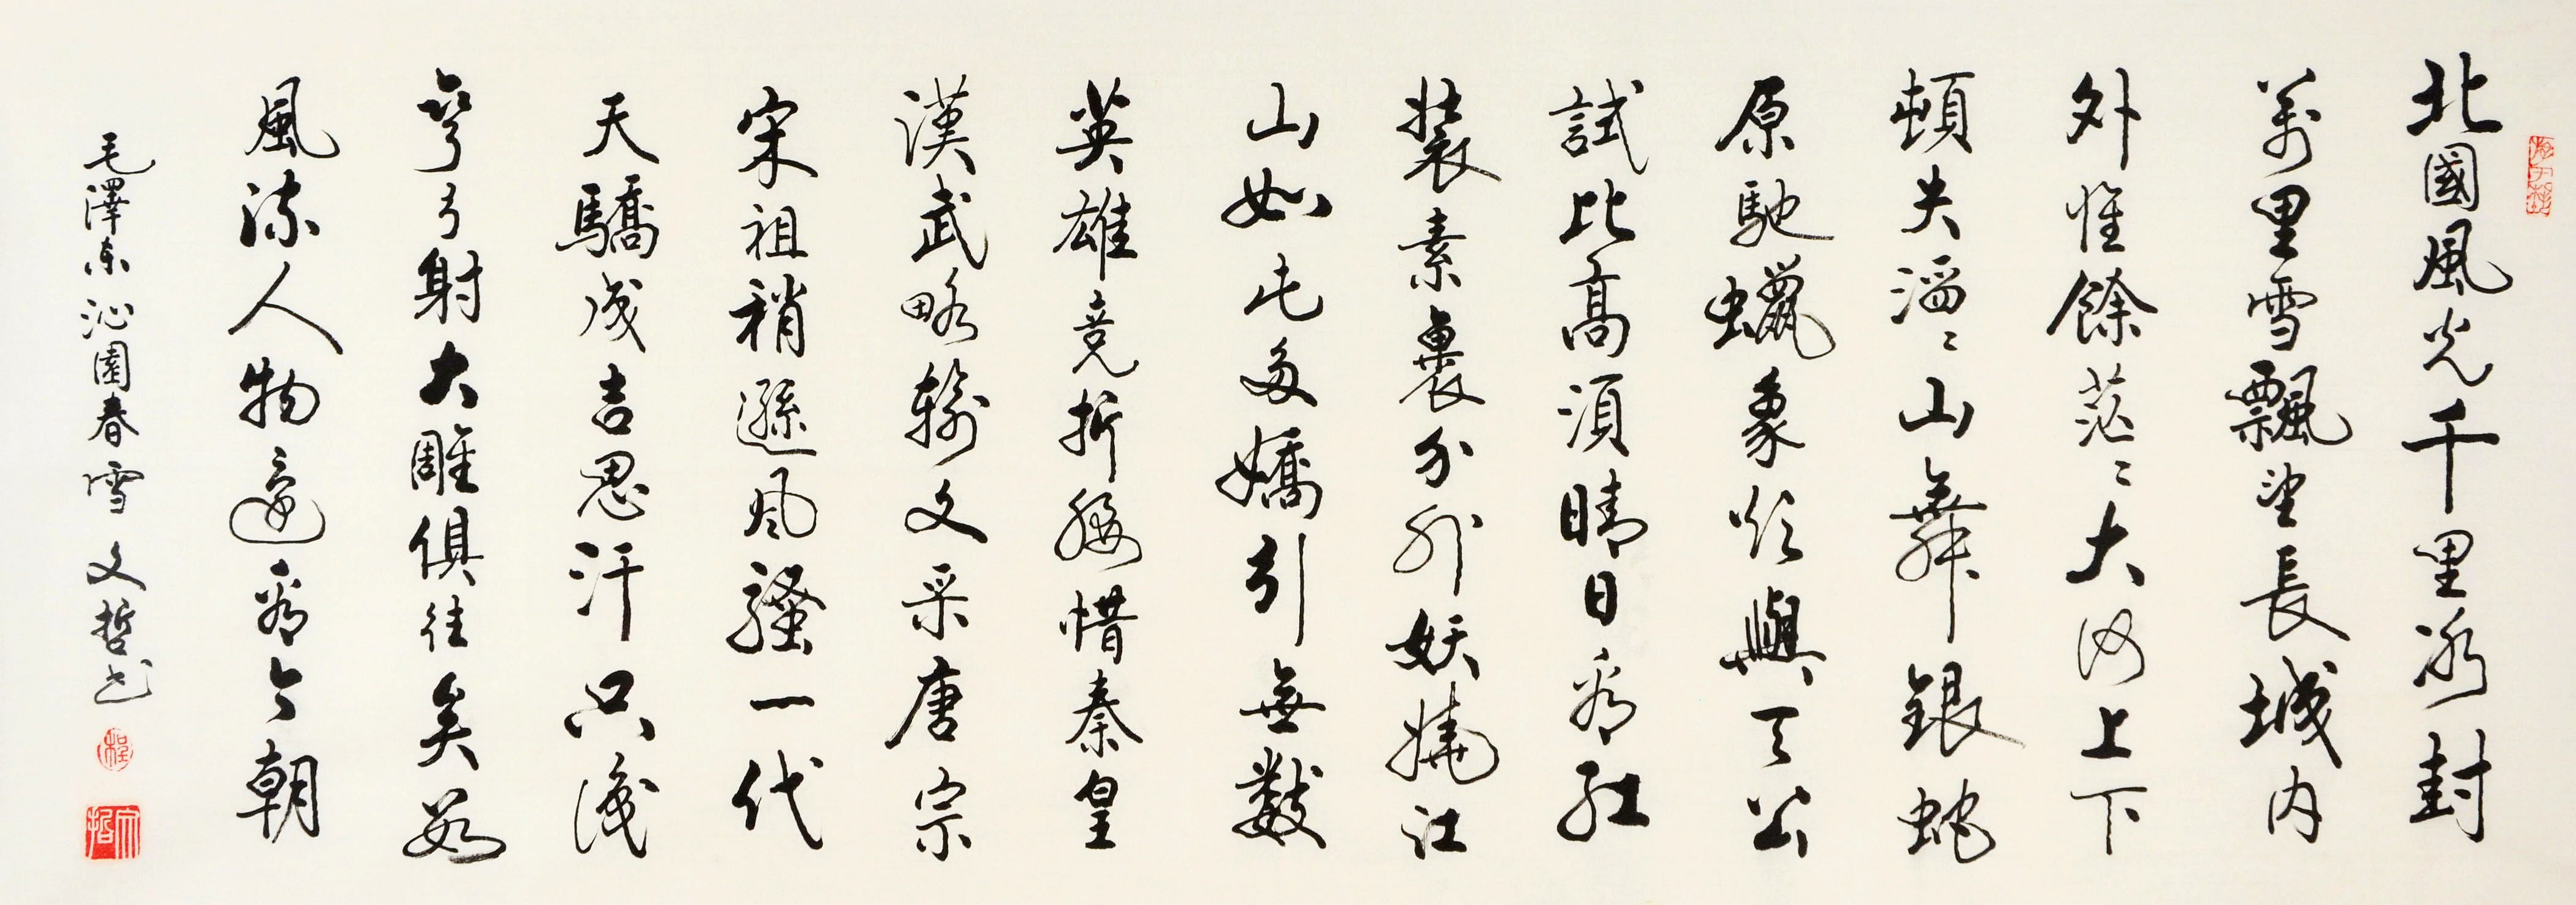 北國風光千里冰封
萬里雪飄望長城內
外惟餘茫〻大河上下
頓失滔〻山舞銀蛇
原馳蠟象欲與天公
試比高須晴日看紅
裝素裹分外妖嬈江
山如此多嬌引無數
英雄競折腰惜秦皇
漢武略輸文采唐宗
宋祖稍遜風騷一代
天驕成吉思汗只識
彎弓射大雕俱往矣數
風流人物還看今朝
毛澤東沁園春雪 文哲書
文哲